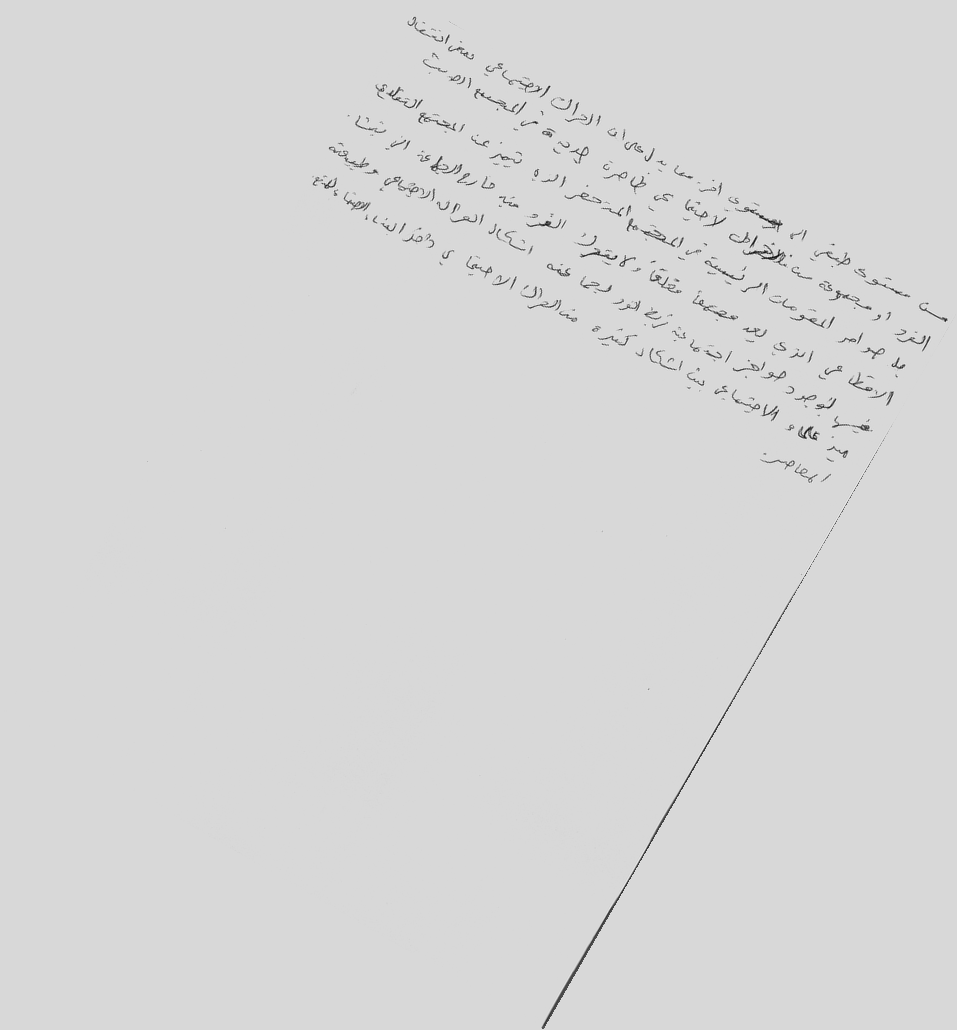 من مستوى طبقي الى مستوى اخر مما يدل على ان الحراك الاجتماعي بمعنى انتقال
الفرد أو مجموعة من الافراد لاجتماعي ظاهرة جديدة في المجتمع الحديث
بل هو احد المقومات الرئيسية في المجتمع المتحضر الذي يتميز عن المجتمع التقليدي
الاقطاعي الذي يعد مجتمعاً مغلقاً ولا يتحرك الفرد فيه خارج الجماعة التي ينشأ
فيها لوجود حواجز اجتماعية فيما يخص اشكال الحراك الاجتماعي وطبيعته
ميز علماء الاجتماع بين اشكال كثيرة من الحراك الاجتماعي داخل البناء الاجتماعي
المعاصر.